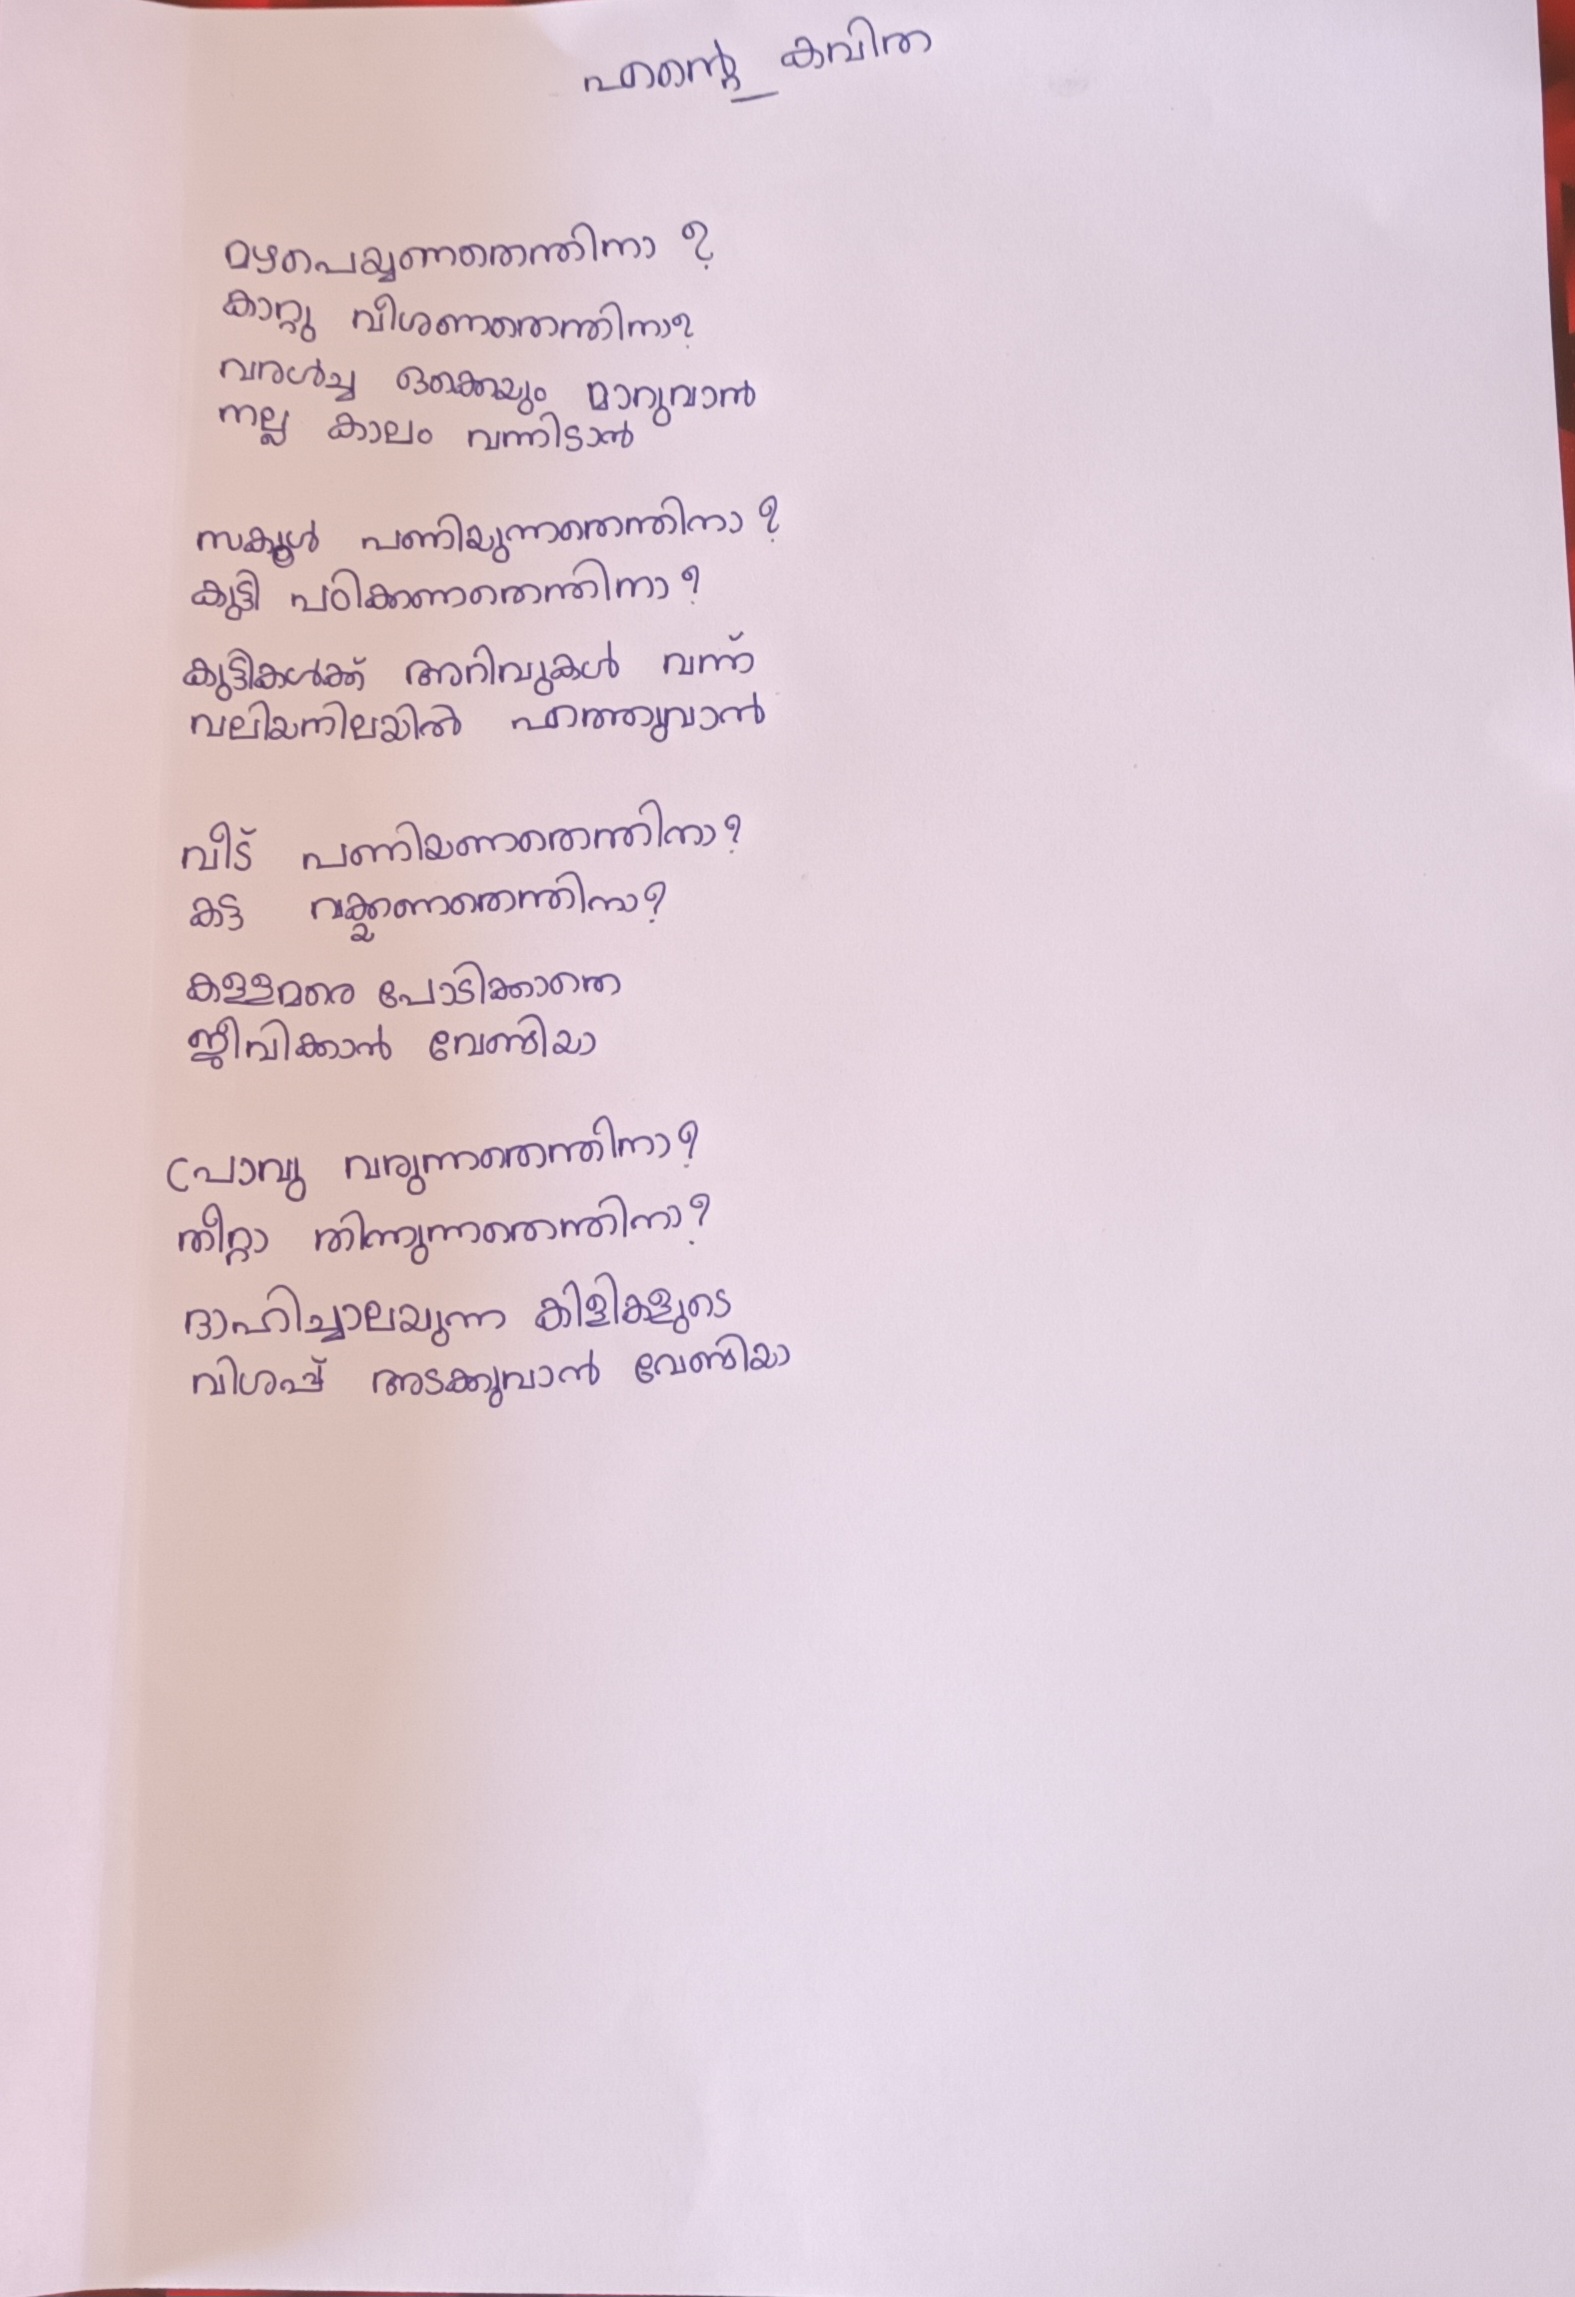 എന്റെ കവിത
മഴപെയ്യണതെന്തിനാ ?
കാറ്റു വീശണതെന്തിനാ?
വരൾച്ച ഒക്കെയും മാറുവാൻ
നല്ല കാലം വന്നിടാൻ
സകൂൾ പണിയുന്നതെന്തിനാ ?
കുട്ടി പഠിക്കണതെന്തിനാ ?
കുട്ടികൾക്ക് അറിവുകൾ വന്ന്
വലിയനിലയിൽ എത്തുവാൻ
വീട് പണിയണതെന്തിനാ?
കട്ട വക്കൂണതെന്തിനാ?
കള്ളമരെ പോടിക്കാതെ
ജീവിക്കാൻ വേണ്ടിയാ
പ്രാവു വരുന്നതെന്തിനാ?
തീറ്റാ തിന്നുന്നതെന്തിനാ?
ദാഹിച്ചാലയുന്ന കിളികളുടെ
വിശപ്പ് അടക്കുവാൻ വേണ്ടിയാ